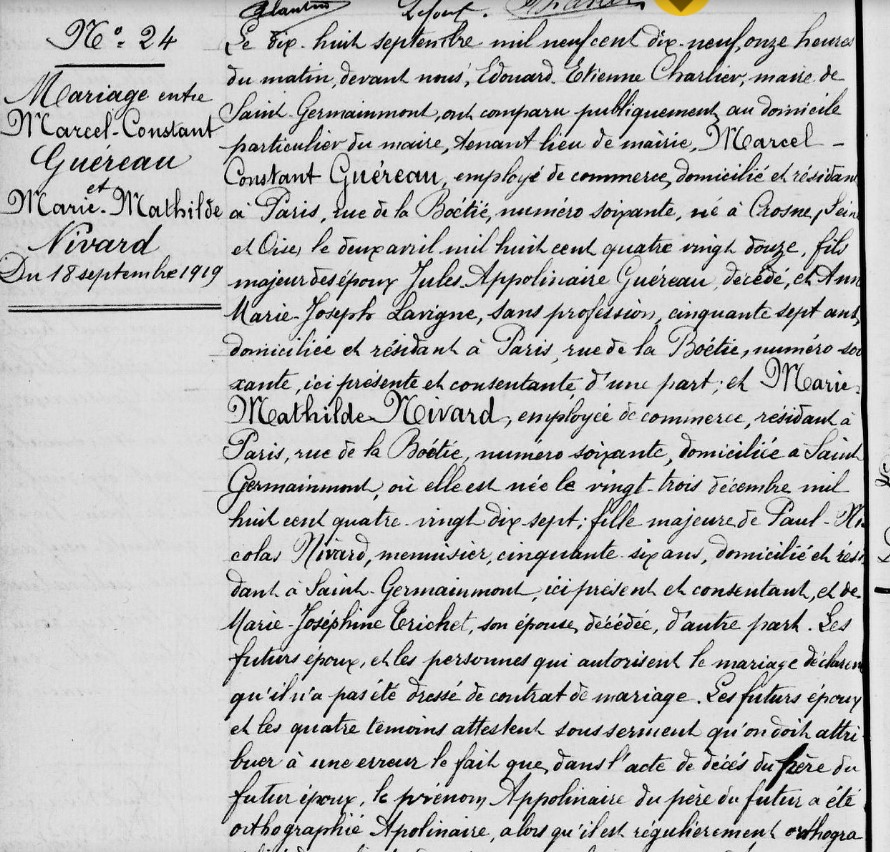 Nº 24
Mariage entre
Marcel-Constant
Guéreau
et
Marie-Mathilde
Nivard
Du 18 septembre 1919
Le dix-huit septembre mil neuf cent dix-neuf, onze heures
du matin, devant nous, Edouard-Etienne Charlier, maire de
Saint-Germainmont, ont comparu publiquement au domicile
particulier du maire, tenant lieu de mairie, Marcel-
Constant Guéreau, employé de commerce, domicilié et résidant
à Paris, rue de la Boétie, numéro soixante, né à Crosne, Seine
et Oise, le deux avril mil huit cent quatre vingt douze, fils
majeur des époux Jules Appolinaire Guéreau, décédé, et Ann
Marie-Joseph Lavigne, sans profession, cinquante sept ans,
domiciliée et résidant à Paris, rue de la Boétie, numéro soi
xante, ici présente et consentante d'une part; et Marie-
Mathilde Nivard, employée de commerce, résidant à
Paris, rue de la Boétie, numéro soixante, domiciliée à Saint
Germainmont, où elle est née le vingt-trois décembre mil
huit cent quatre-vingt dix sept; fille majeure de Paul-Ni
colas Nivard, menuisier, cinquante-six ans, domicilié et rési
dant à Saint-Germainmont, ici présent et consentant, et de
Marie-Joséphine Trichet, son épouse, décédée, d'autre part. Les
futurs époux, et les personnes qui autorisent le mariage déclarent
qu'il n'a pas été dressé de contrat de mariage. Les futurs époux
et les quatre témoins attestent sous serment qu'on doit attri
buer à une erreur le fait que, dans l'acte de décès du père du
futur époux, le prénom Appolinaire du père du futur a été
orthographié Apolinaire, alors qu'il est régulièrement orthogra